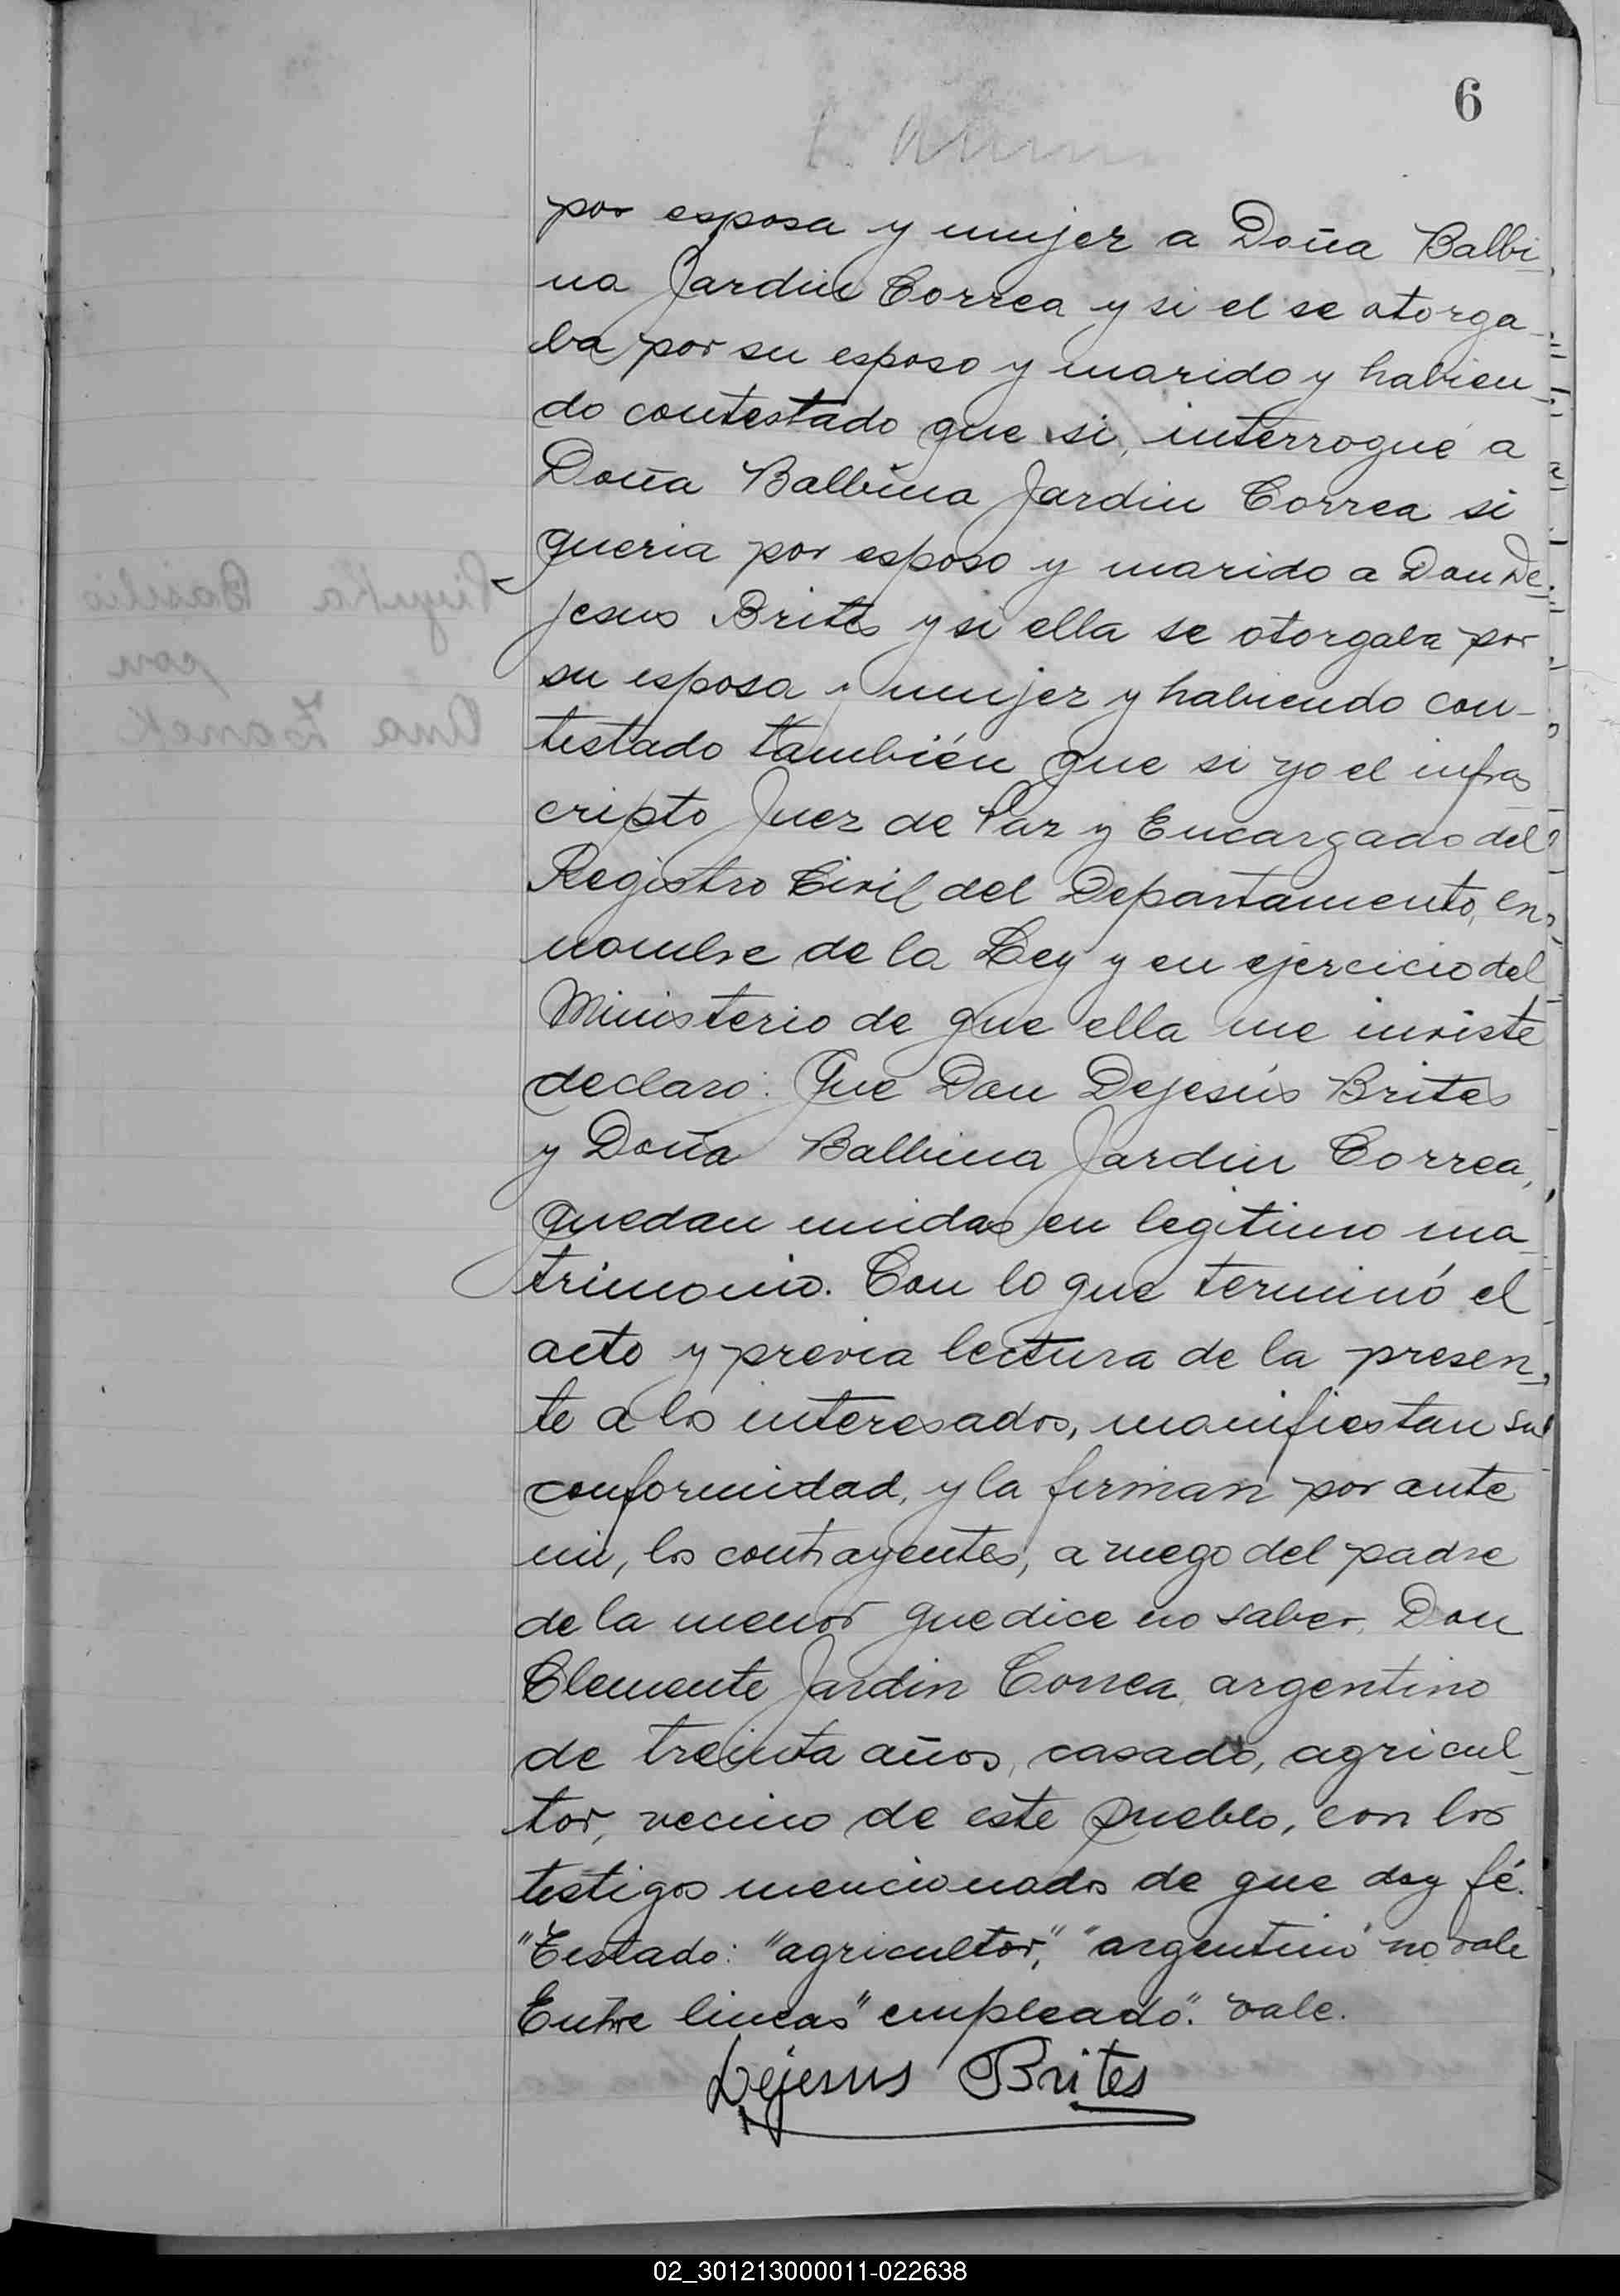 6
por esposa y mujer a Doña Balbi-
na Jardin Correa y si el se otorga-
ba por su esposo y marido y habien-
do contestado que si, interrogué a
Doña Balbina Jardin Correa si
queria por esposo y marido a Don De-
jesus Brites y si ella se otorgaba por
su esposa y mujer y habiendo con-
testado también que si yo el infras-
cripto Juez de Paz y Encargado del
Registro Civil del Departamento, en
nombre de la Ley y en ejercicio del
Ministerio de que ella me inviste
declaro: Que Don Dejesús Brites
y Doña Balbina Jardin Correa,
quedan unidos en legitimo ma-
trimonio. Con lo que terminó el
acto y previa lectura de la presen-
te a los interesados, manifiestan su
conformidad, y la firman por ante
mi, los contrayentes, a ruego del padre
de la menor que dice no saber, Don
Clemente Jardin Correa, argentino
de treinta años, casado, agricul-
tor, vecino de este pueblo, con los
testigos mencionados de que doy fé.
"Testado: "agricultor", "argentino" no vale
Entre lineas "empleado". vale.
Dejesus Brites
02_301213000011-022638